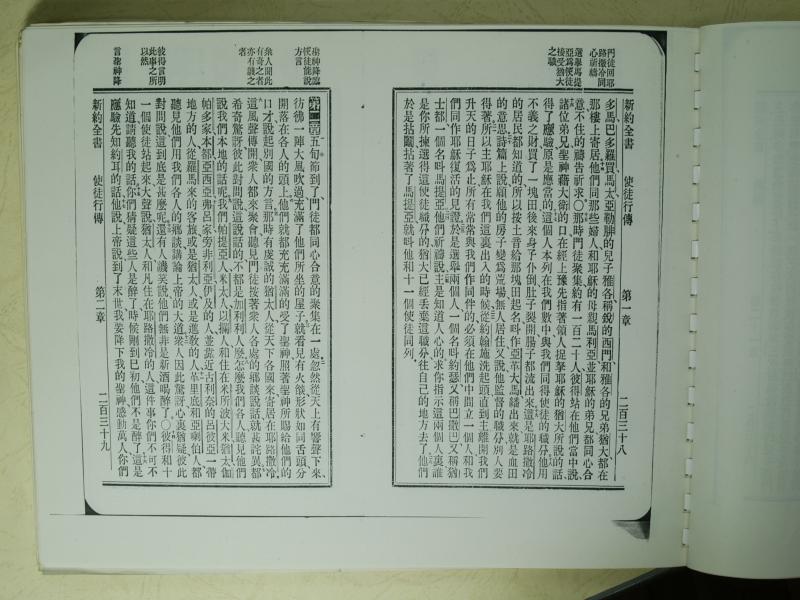 新約全書　使徒行傳　第一章　二百三十八
門徒回耶
路撒冷同
心祈禱
選舉馬提
亞爲使徒
接受猶大
之職
多馬巴多羅買馬太亞勒腓的兒子雅各稱銳的西門和雅各的兄弟猶大都在
那樓上寄居他們同那些婦人和耶穌的母親馬利亞並耶穌的弟兄都同心合
意不住的禱告祈求○那時門徒聚集約有一百二十人彼得站在他們當中說
諸位弟兄聖神藉大衛的口在經上豫先指著領人捉拏耶穌的猶大所說的話
得了應驗原是應當的這個人本列在我們數中與我們同得使徒的職分他用
不義之財買了一塊田後來身子仆倒肚子裂開腸子都流出來這是耶路撒冷
的居民都知道的所以按土音給那塊田起名叫作亞革大馬繙出來就是血田
的意思詩篇上說願他的房子變爲荒場無人居住又說他監督的職分別人要
得著所以主耶穌在我們這裏出入的時候從約翰施洗起頭直到主離開我們
升天的日子爲止所有常常與我們作同伴的必須在他們中間立一個人和我
們同作耶穌復活的見證於是選舉兩個人一個名叫約瑟又稱巴撒巴又稱猶
士都一個名叫馬提亞他們祈禱說主是知道人心的求你指示這兩個人裏誰
是你所揀選得這使徒職分的猶大已經丟棄這職分往自己的地方去了他們
於是拈鬮拈著了馬提亞就叫他和十一個使徒同列
聖神降臨
使徒能說
方言
衆人聞此
有奇之者
亦有譏之
者
彼得言明
此事之所
以然
言聖神降
第二章五旬節到了門徒都同心合意的聚集在一處忽然從天上有響聲下來
彷彿一陣大風吹過充滿了他們所坐的屋子就看見有火燄形狀如同舌頭分
開落在各人的頭上他們就都充充滿滿的受了聖神照著聖神所賜給他們的
口才說起別國的方言那時有虔誠的猶太人從天下各國來寄居在耶路撒冷
這風聲傳開衆人都來聚會聽見門徒按著衆人各處的鄉談說話就甚詫異都
希奇驚訝彼此對問說這說話的不都是加利利人麼怎麼我們各人聽見他們
說我們本地的話呢我們帕提亞人米太人以攔人和住在米所波大米猶太伽
帕多家本都亞西亞弗呂家旁非利亞伊及的人並靠近古利奈的呂彼亞一帶
地方的人從羅馬來的客旅或是猶太人或是進敎的人革里底和亞喇伯人都
聽見他們用我們各人的鄉談講論上帝的大道衆人因此驚訝心裏猶疑彼此
對問說這到底是甚麼呢還有人譏笑說他們無非是新酒喝醉了○彼得和十
一個使徒站起來大聲說猶太人和凡住在耶路撒冷的人這件事你們不可不
知道請聽我的話你們猜疑這些人是醉了時候剛到巳初他們不是醉了這是
應驗先知約耳的話他說上帝說到了末世我要降下我的聖神感動萬人你們
新約全書　使徒行傳　第二章　二百三十九